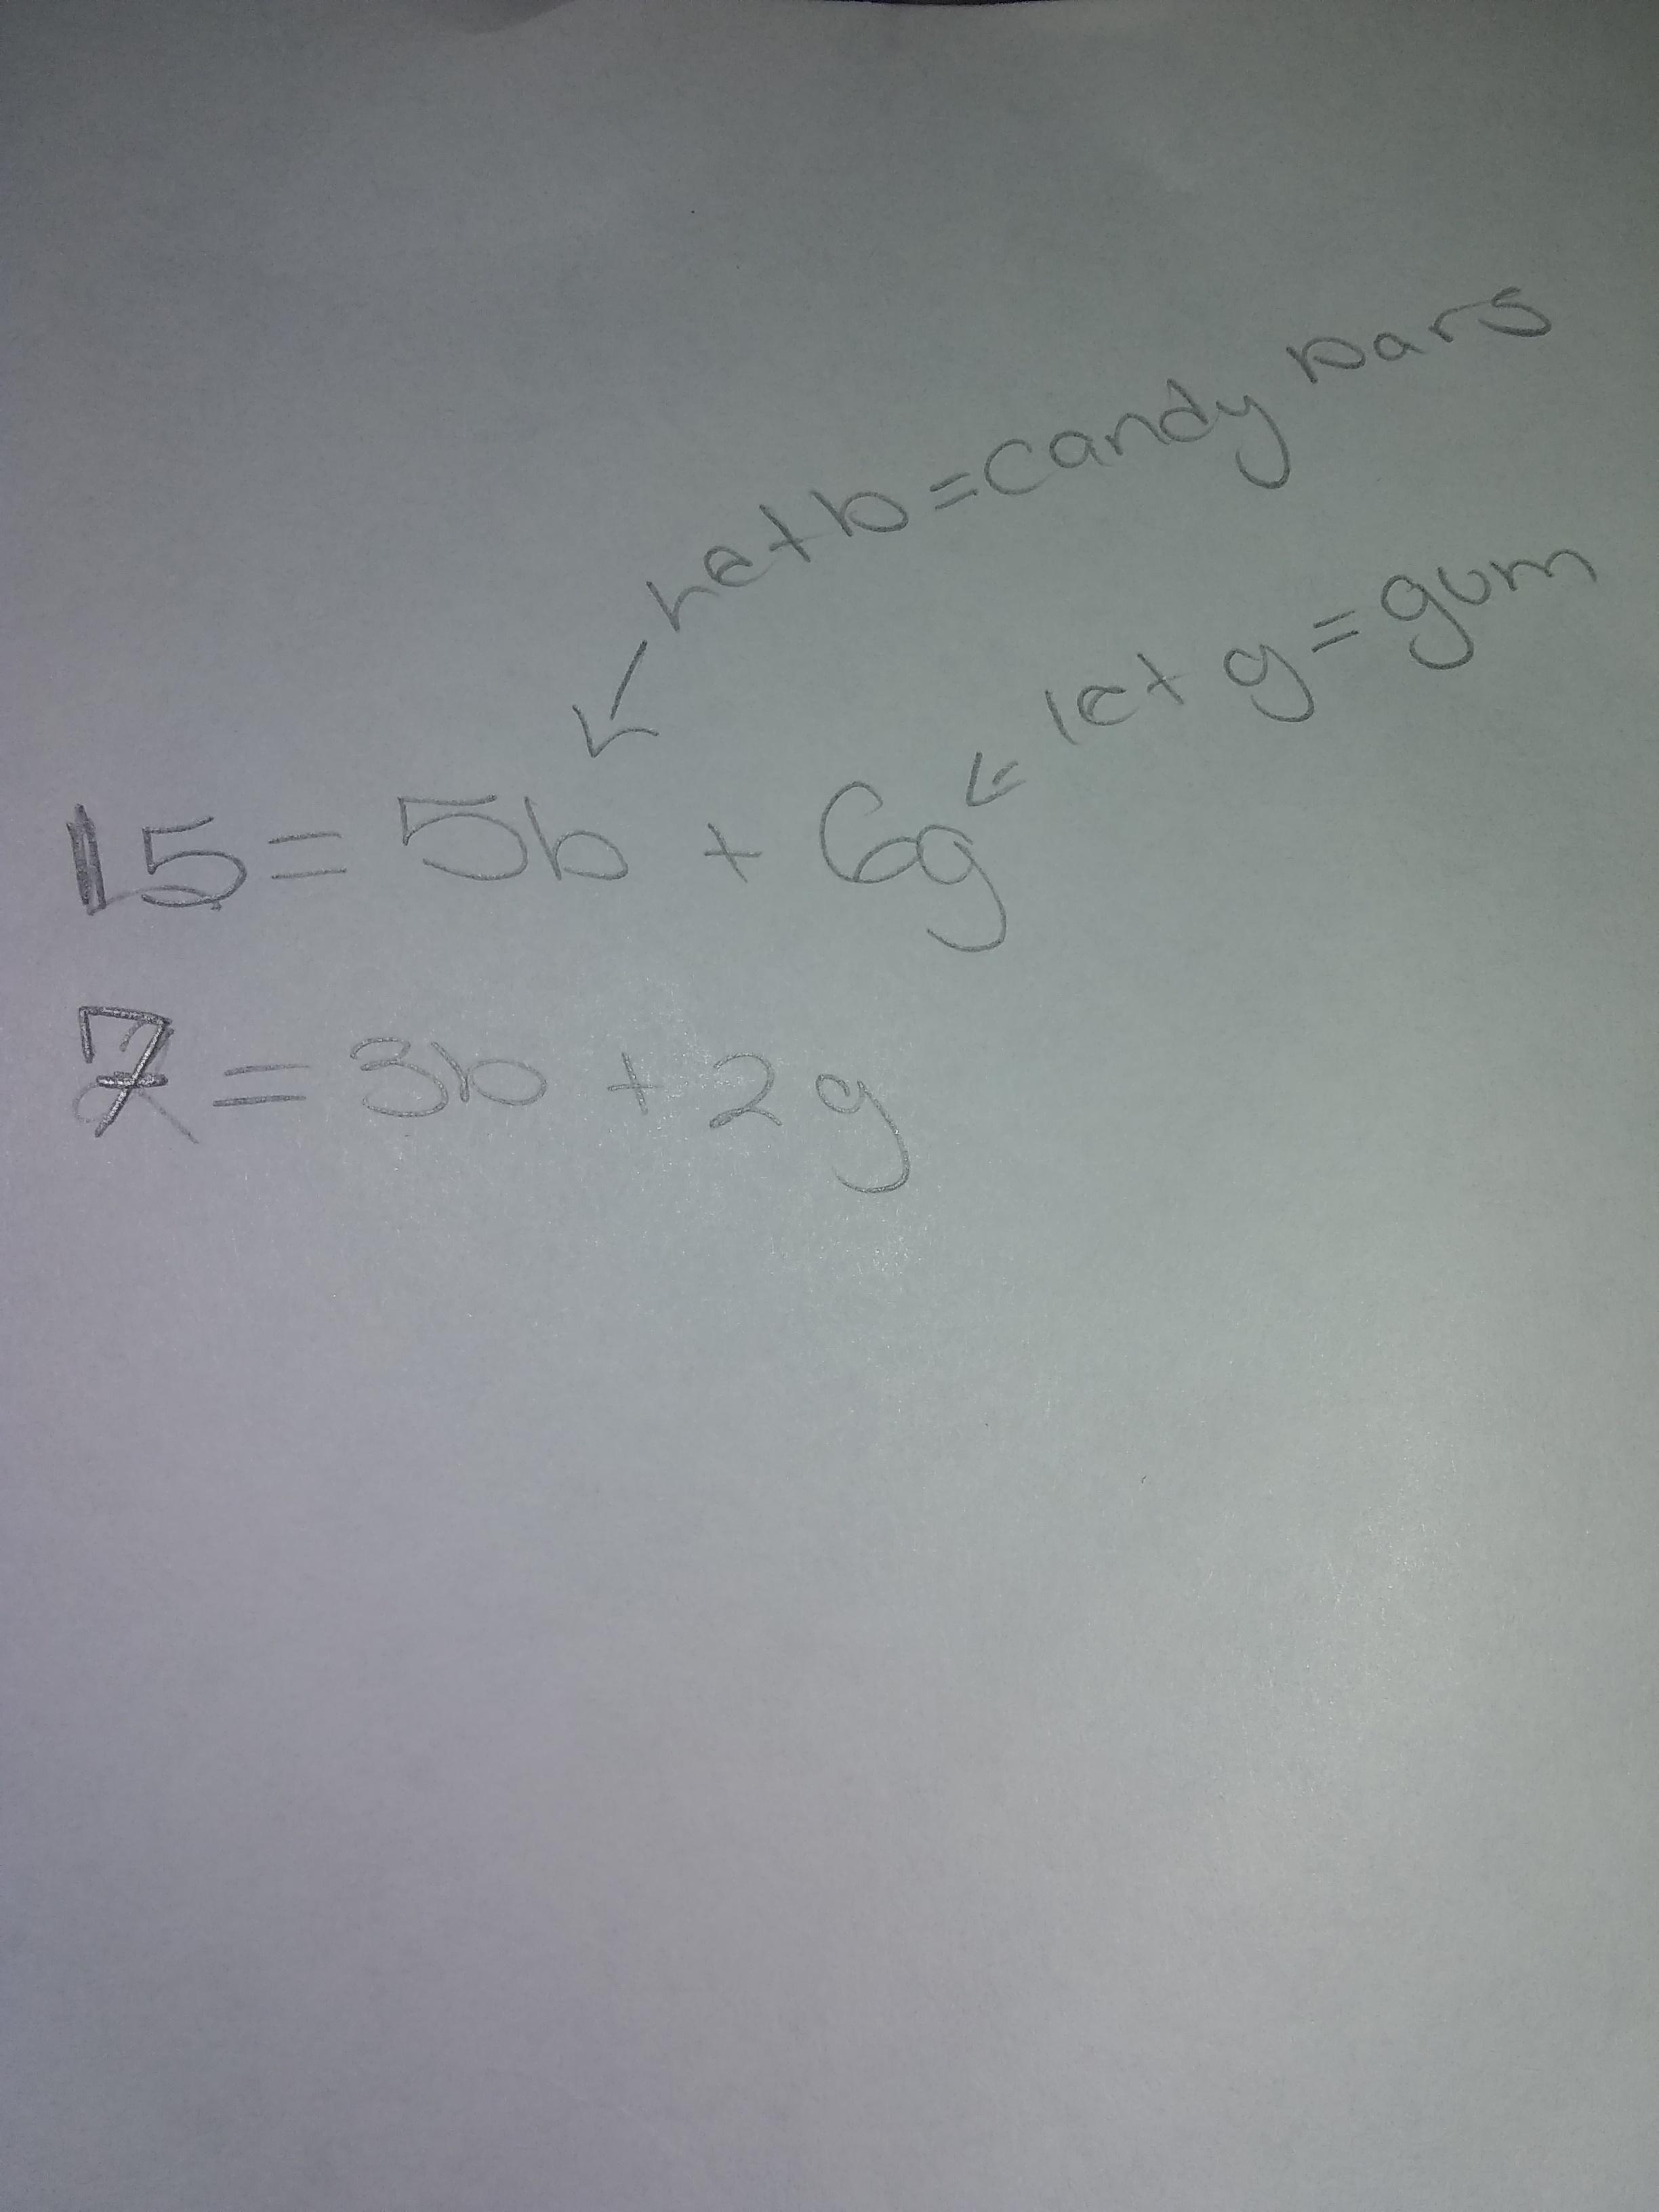 let b = candy bars
let g = gum
15 = 5b + 6g
7 = 3b + 2g